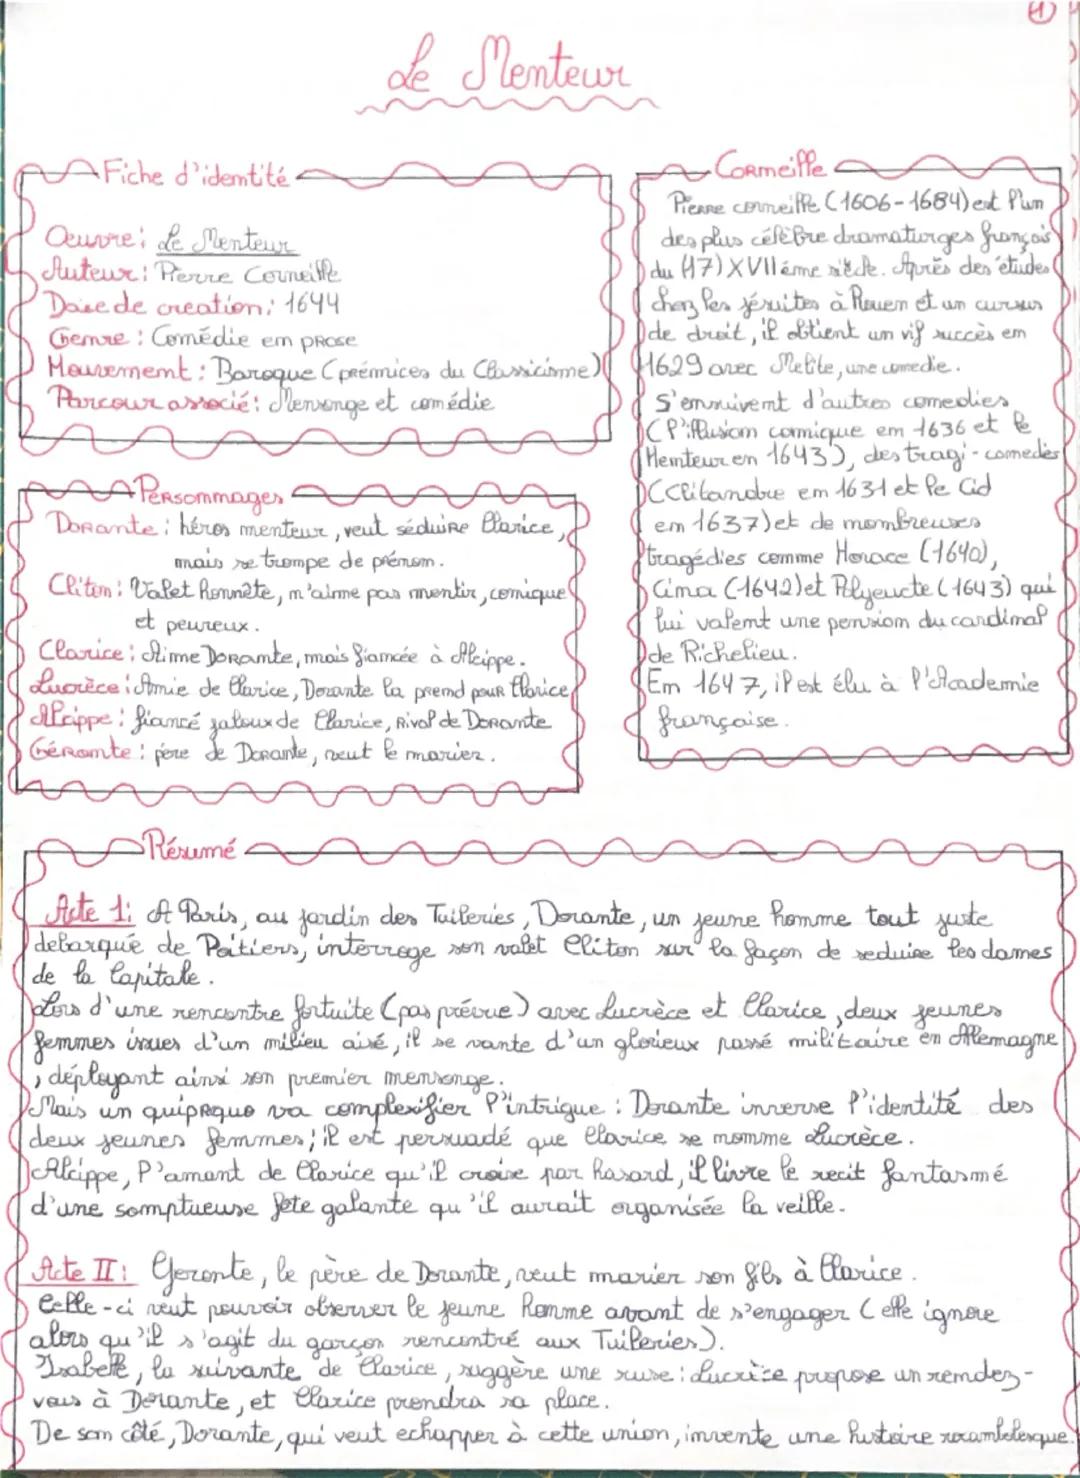 1
Le Menteur
Fiche d'identité
Œuvre : Le Menteur
Auteur : Pierre Corneille
Date de creation : 1644
Genre : Comédie en prose
Mouvement : Baroque (prémices du Classicisme)
Parcour associé : Mensonge et comédie
Personnages
Dorante : héros menteur, veut séduire Clarice,
mais se trompe de prénom.
Cliton : Valet honnête, n'aime pas mentir, comique
et peureux.
Clarice : Aime Dorante, mais fiancée à Alcippe.
Lucrèce : Amie de Clarice, Dorante la prend pour Clarice
Alcippe : fiancé jaloux de Clarice, Rival de Dorante
Géronte : père de Dorante, veut le marier.
Corneille
Pierre corneille (1606-1684) est l'un
des plus célèbre dramaturges français
du (17) XVIIéme siècle. Après des études
chez les jésuites à Rouen et un cursus
de droit, il obtient un vif succès en
1629 avec Melite, une comedie.
S'ensuivent d'autres comedies
(l'illusion comique en 1636 et le
Menteur en 1643), des tragi-comedès
(Clitandre en 1631 et le Cid
en 1637) et de nombreuses
tragédies comme Horace (1640),
Cinna (1642) et Polyeucte (1643) qui
lui valent une pension du cardinal
de Richelieu.
En 1647, il est élu à l'Academie
française.
Résumé
Acte 1 : A Paris, au jardin des Tuileries, Dorante, un jeune homme tout juste
debarqué de Poitiers, interroge son valet Cliton sur la façon de seduire les dames
de la Capitale.
Lors d'une rencontre fortuite (pas prévue) avec Lucrèce et Clarice, deux jeunes
femmes issues d'un milieu aisé, il se vante d'un glorieux passé militaire en Allemagne
, déployant ainsi son premier mensonge.
Mais un quiproquo va complexifier l'intrigue : Dorante inverse l'identité des
deux jeunes femmes ; il est persuadé que Clarice se nomme Lucrèce.
Alcippe, l'amant de Clarice qu'il croise par hasard, il livre le recit fantasmé
d'une somptueuse fête galante qu'il aurait organisée la veille.
Acte II : Geronte, le père de Dorante, veut marier son fils à Clarice.
Celle-ci veut pouvoir observer le jeune homme avant de s'engager (elle ignore
alors qu'il s'agit du garçon rencontré aux Tuileries).
Isabelle, la suivante de Clarice, suggère une ruse : Lucrèce propose un rendez-
vous à Dorante, et Clarice prendra sa place.
De son côté, Dorante, qui veut echapper à cette union, invente une histoire rocambolesque.